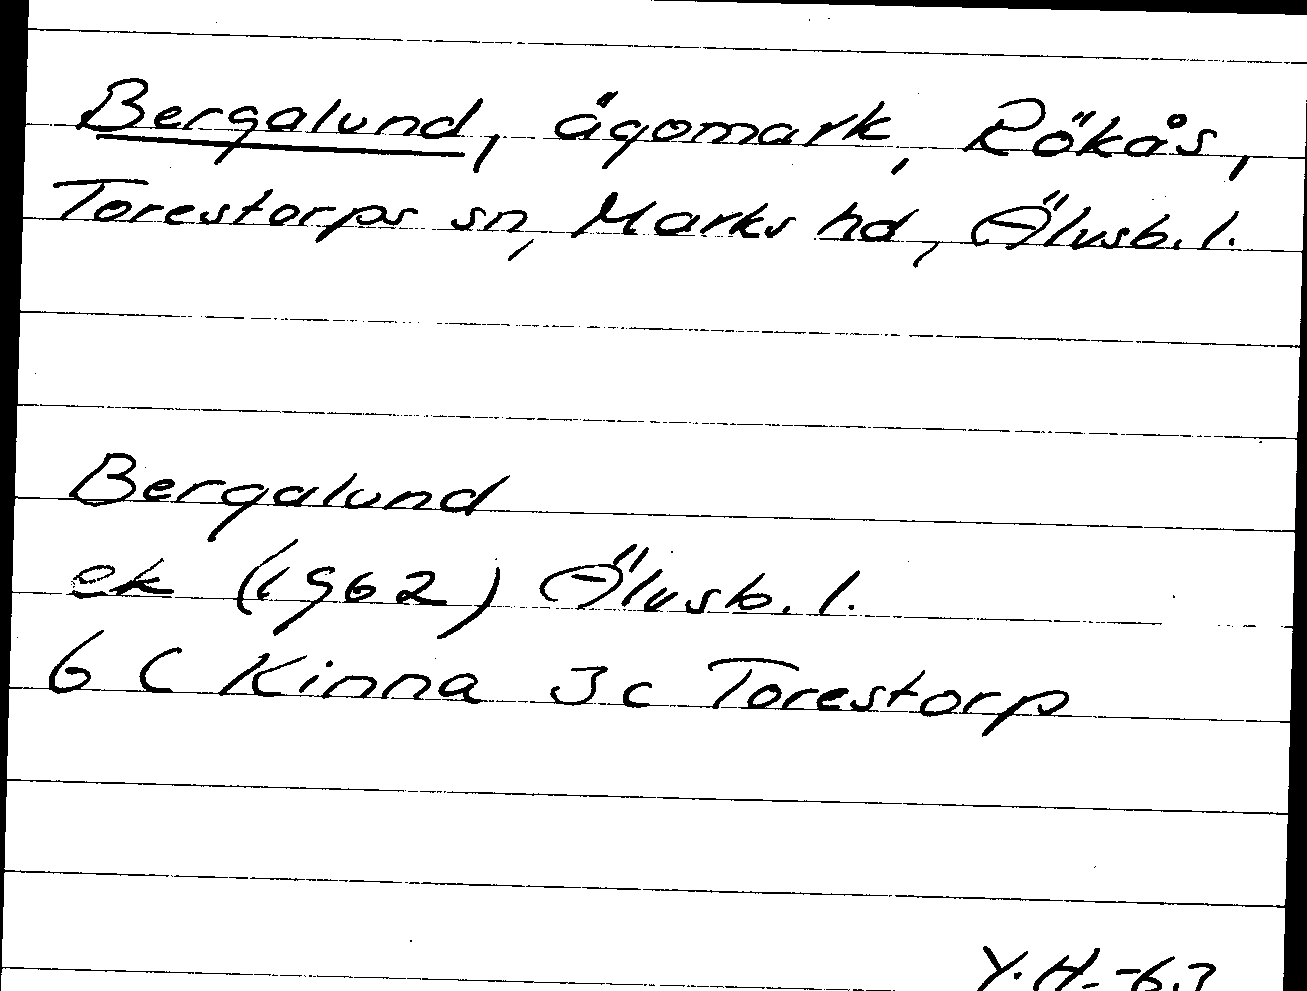 Bergalund, ägomark, Rökås,
Torestorps sn, Marks hd, Älvsb. l.
Bergalund
ek (1962) Älvsb. l.
6 C Kinna 3c Torestorp
Y. H. -63